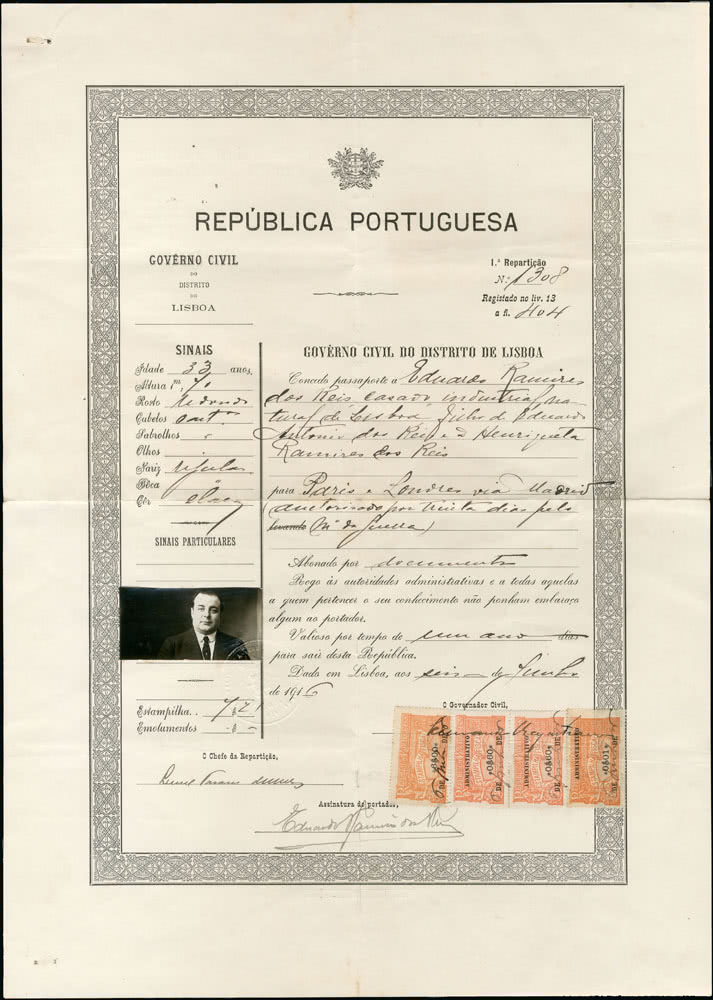 REPÚBLICA PORTUGUESA
GOVÊRNO CIVIL
DO
DISTRITO
DO
LISBOA
1.ª Repartição
N.º 1308
Registado no liv. 13
a fl. 404
SINAIS
Idade 33 anos.
Altura 1m,70
Rosto redondo
Cabelos cast.os
Sobrolhos
Olhos
Nariz regular
Bôca
Côr
SINAIS PARTICULARES
Estampilha
Emolumentos
O Chefe da Repartição,
GOVÊRNO CIVIL DO DISTRITO DE LISBOA
Concedo passaporte a Eduardo Ramires
dos Reis casado, industrial, na
tural de Lisboa, filho de Eduardo
Antonio dos Reis e de Henriqueta
Ramires dos Reis
para Paris e Londres via Madrid
(autorisado por trinta dias pelo
Mº da Guerra)
Abonado por documentos
Rogo às autoridades administrativas e a todas aquelas
a quem pertencer o seu conhecimento não ponham embaraço
algum ao portador.
Valioso por tempo de um ano dias
para sair desta República.
Dado em Lisboa, aos seis de Junho
de 1916
O Governador Civil,
ADMINISTRATIVO
ADMINISTRATIVO
ADMINISTRATIVO
ADMINISTRATIVO
Assinatura do portador,
Eduardo Ramires dos Reis